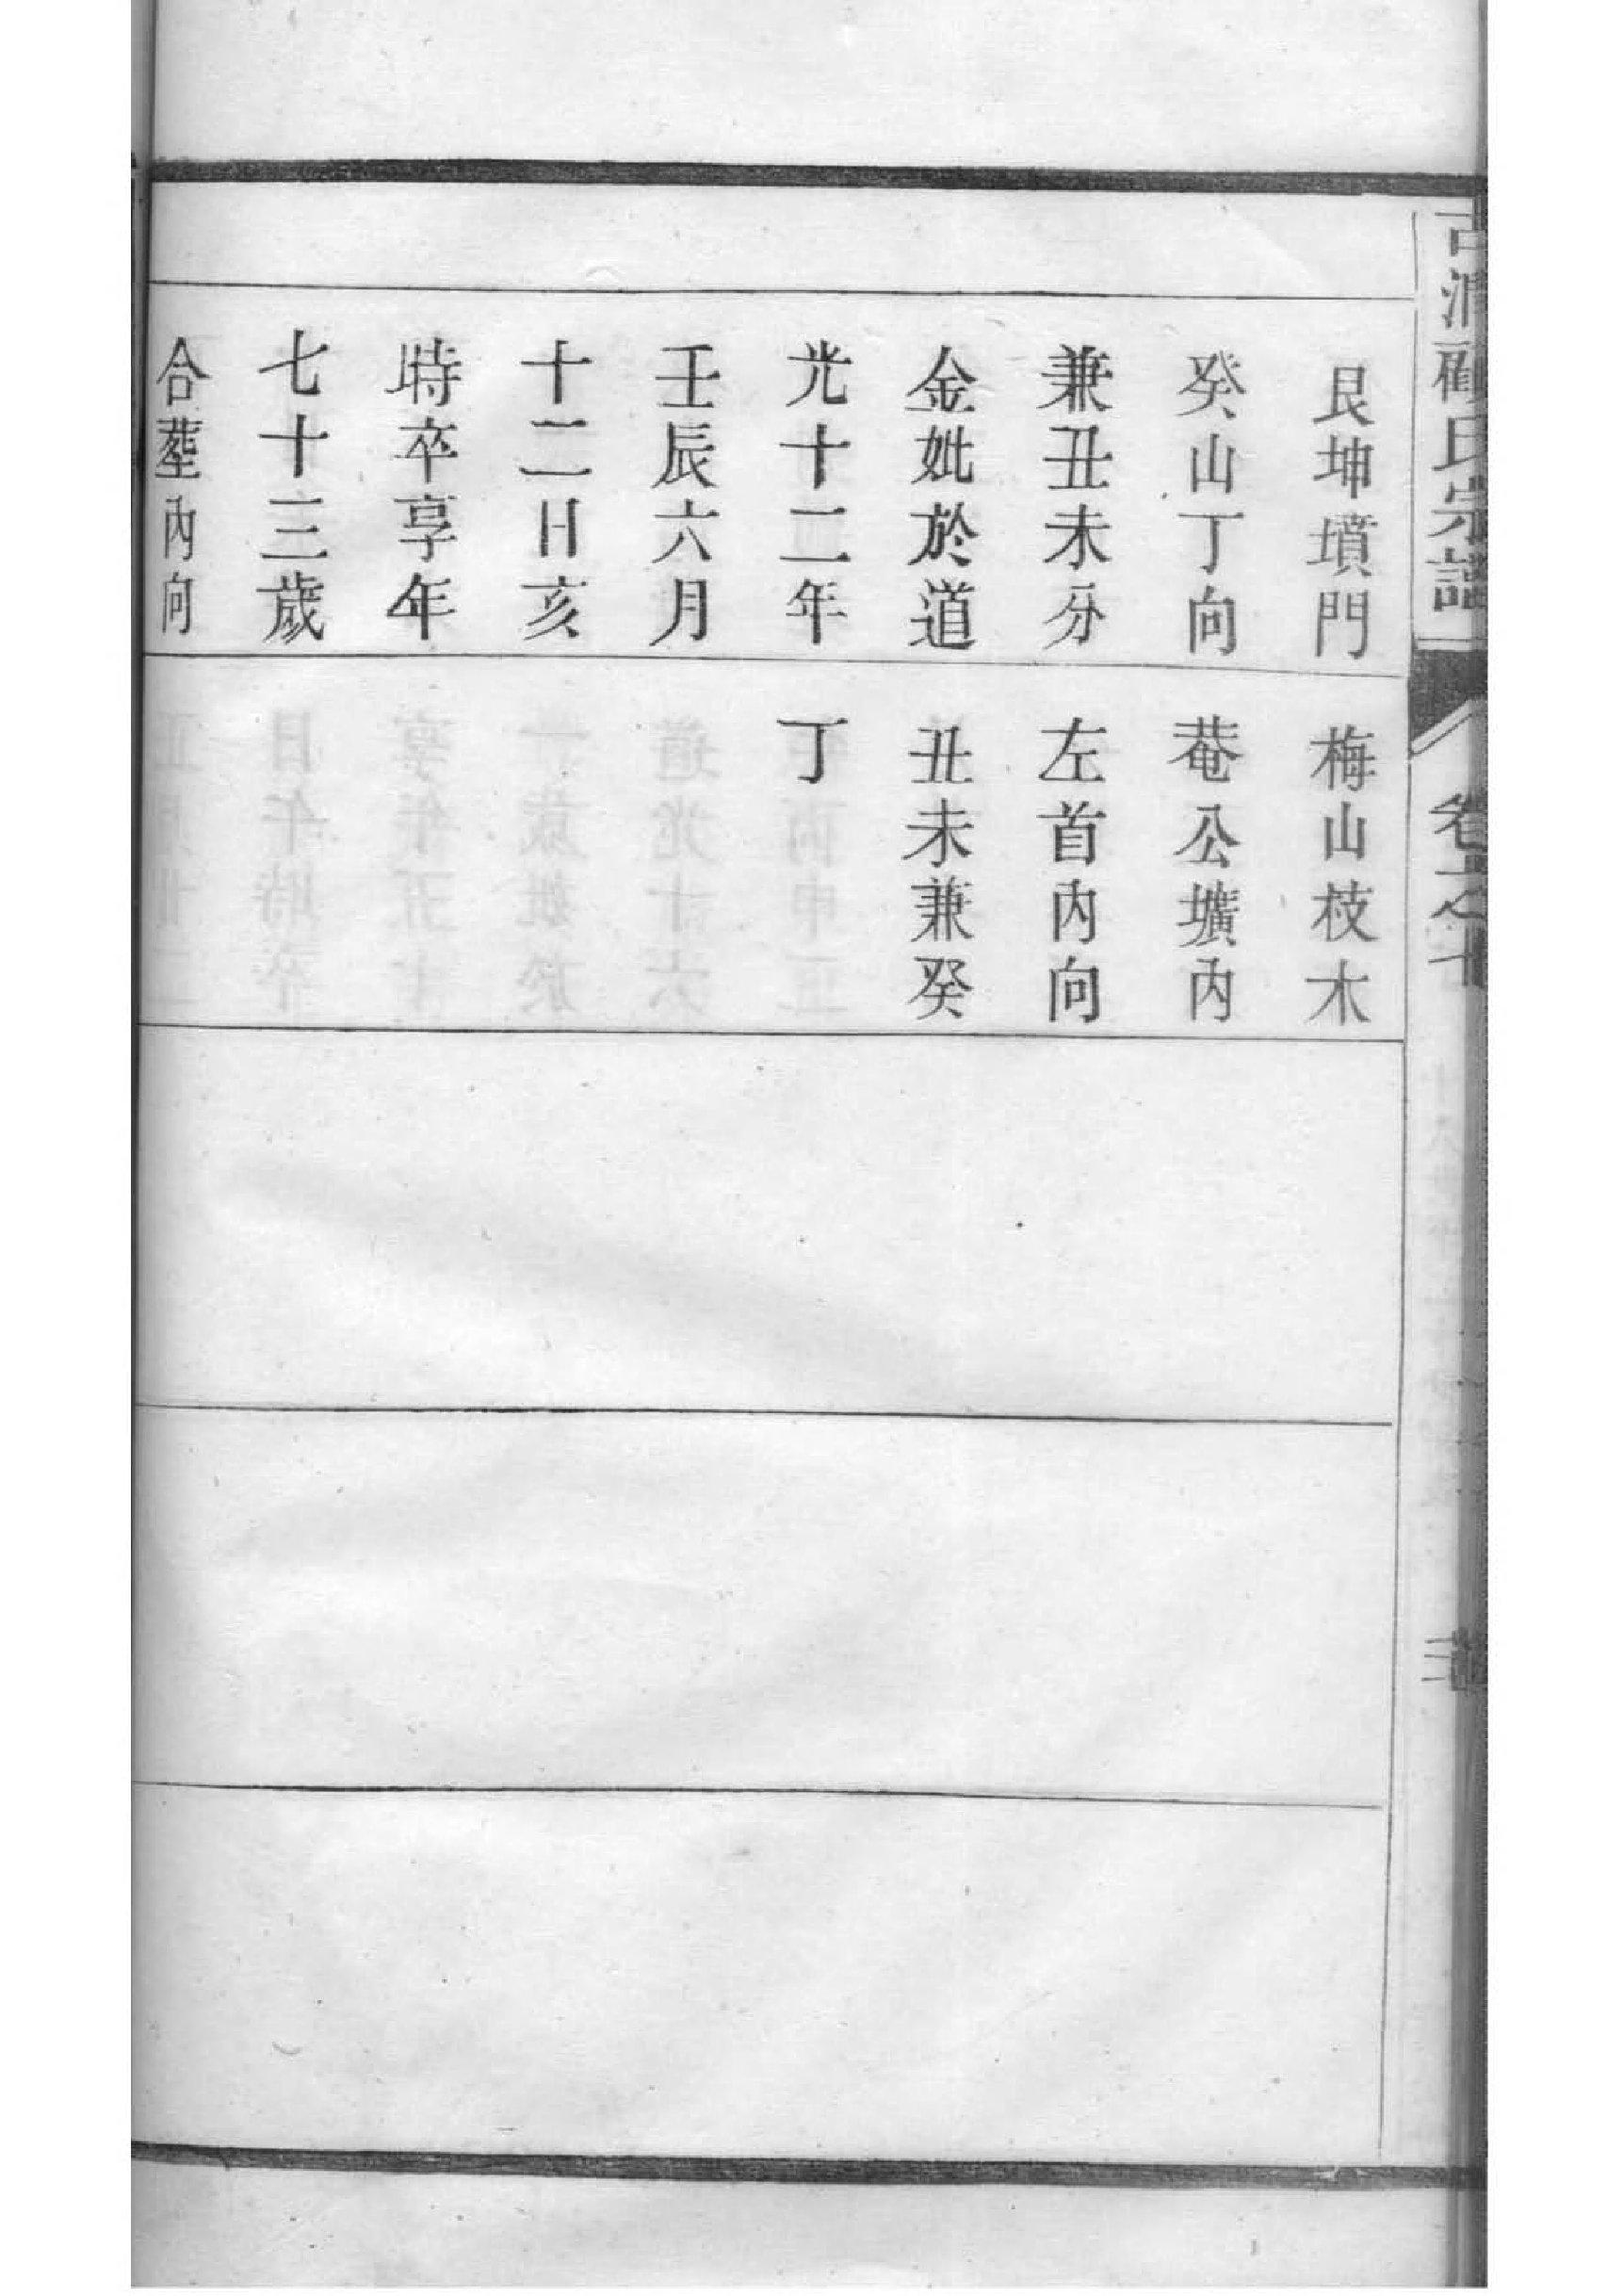 顧氏宗譜
艮坤墳門
癸山丁向
兼丑未分
金妣於道
光十二年
壬辰六月
十二日亥
時卒享年
七十三歲
合葬內向
梅山枝木
菴公壙內
左首內向
丑未兼癸
丁